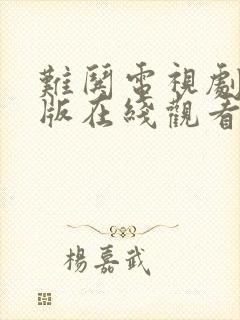 難鬩電視劇
版在綫觀看
楊嘉武